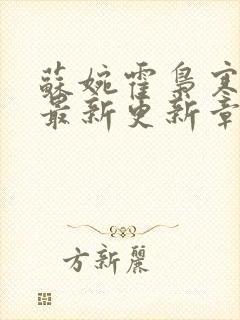 蘇婉霍梟寒
最新更新章
方新麗